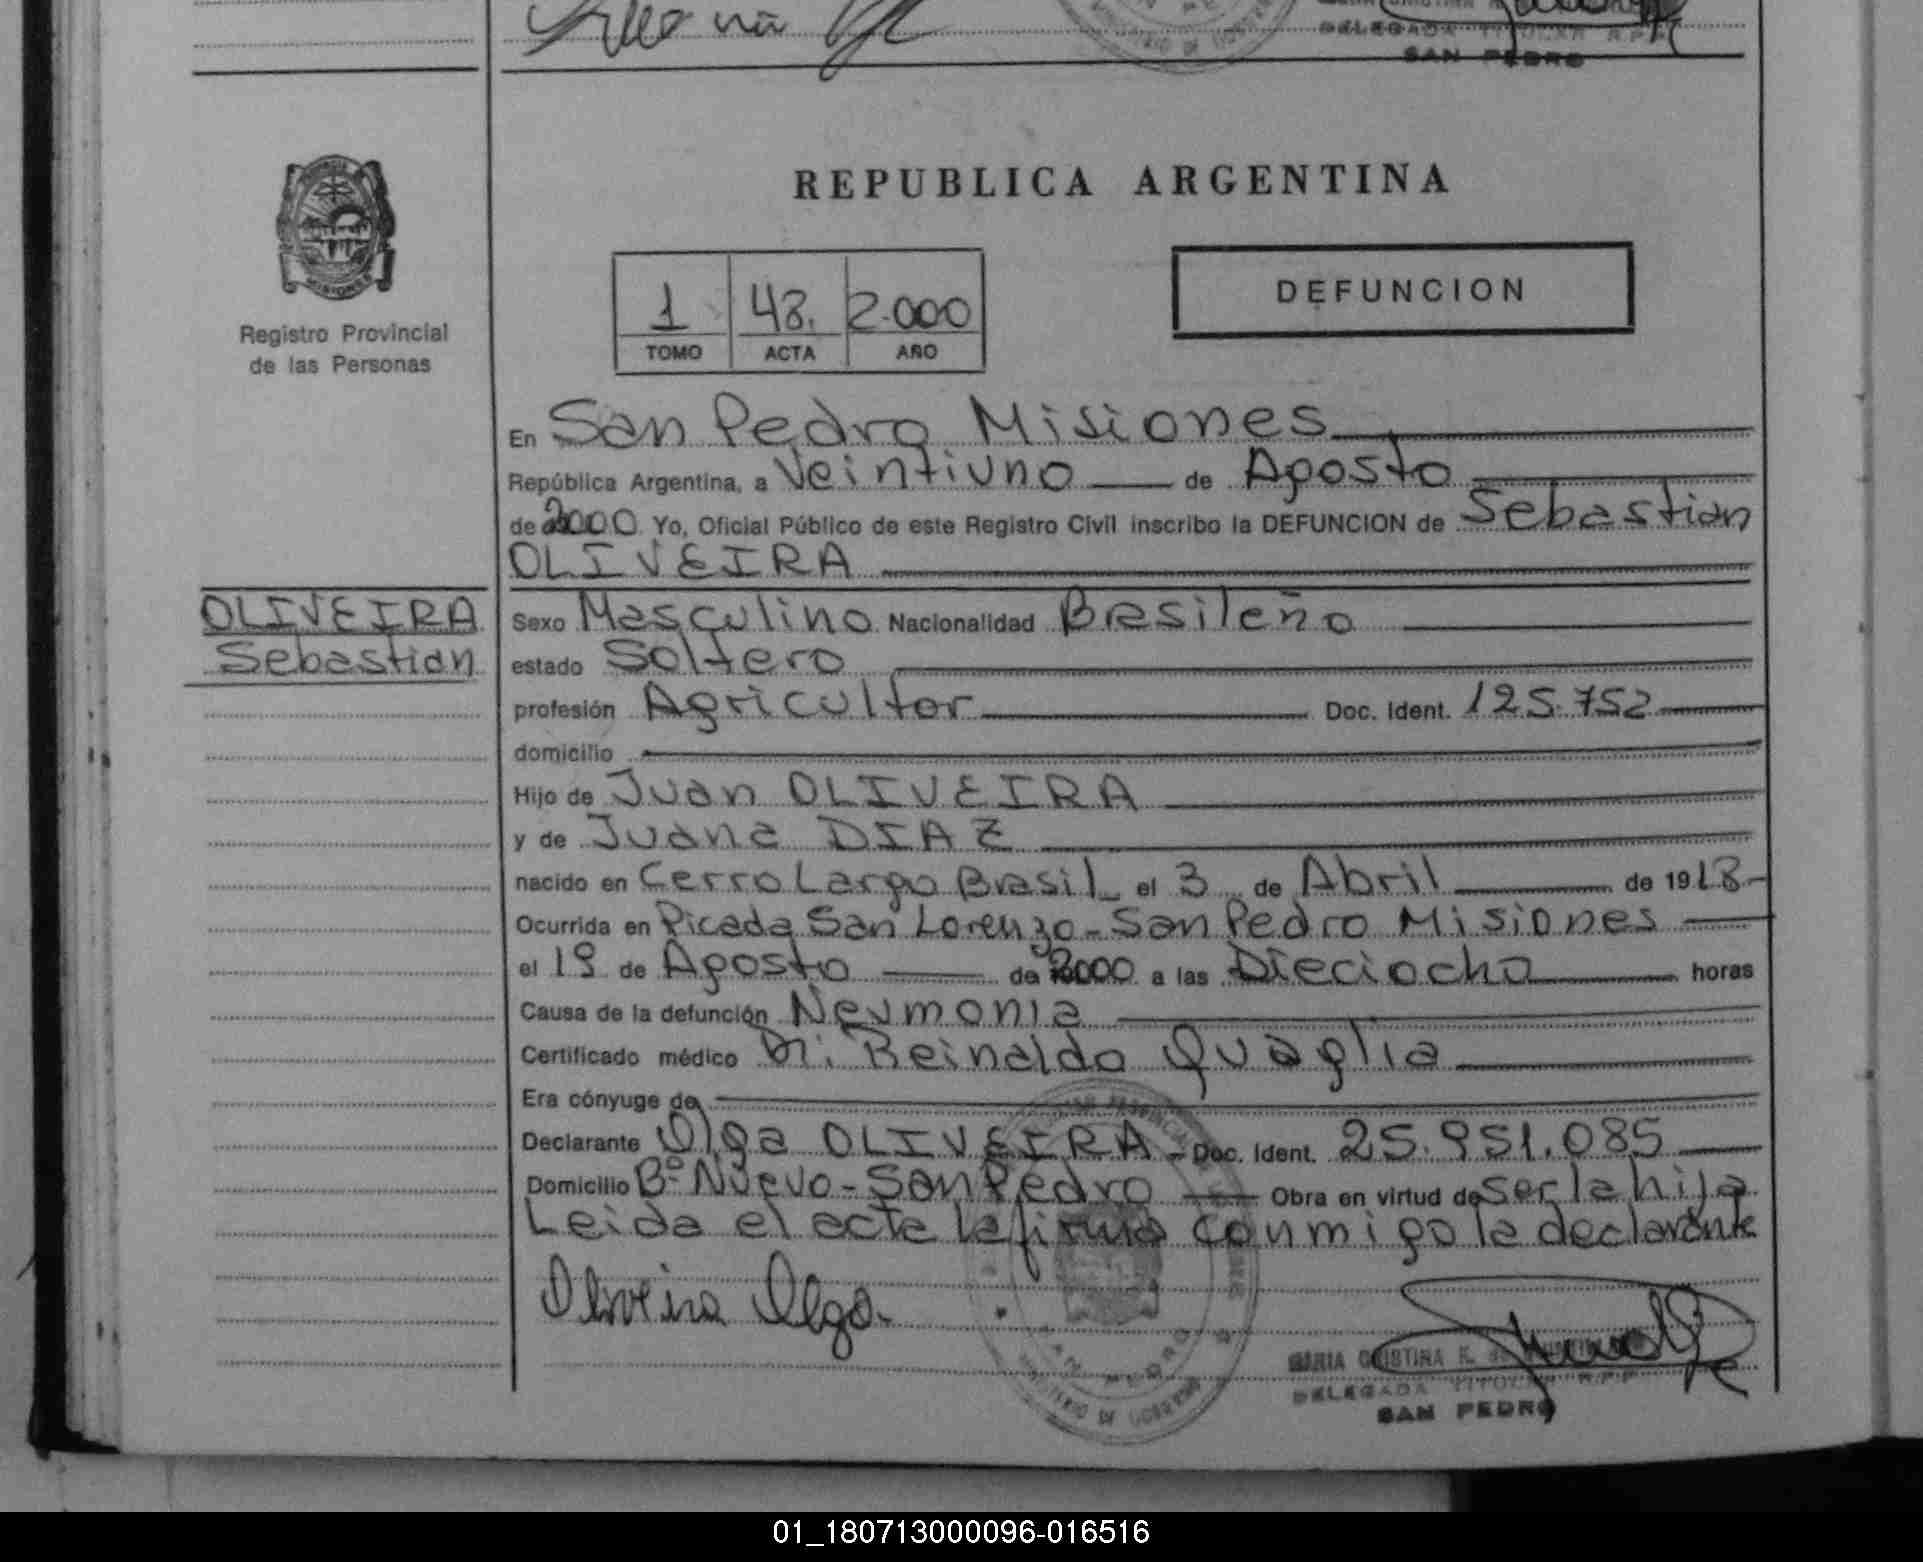 DELEGADA TITULAR R.P.P.
SAN PEDRO
REPUBLICA ARGENTINA
1 48. 2.000
TOMO ACTA AÑO
DEFUNCION
MISIONES
Registro Provincial
de las Personas
En San Pedro Misiones
República Argentina, a Veintiuno de Agosto
de 2000 Yo, Oficial Público de este Registro Civil inscribo la DEFUNCION de Sebastian
OLIVEIRA
OLIVEIRA
Sebastian
Sexo Masculino Nacionalidad Brasileño
estado Soltero
profesión Agricultor Doc. Ident. 125.752
domicilio
Hijo de Juan OLIVEIRA
y de Juana DIAZ
nacido en Cerro Largo Brasil el 3 de Abril de 1918
Ocurrida en Picada San Lorenzo - San Pedro Misiones
el 19 de Agosto de 2000 a las Dieciocho horas
Causa de la defunción Neumonia
Certificado médico Dr. Reinaldo Quaglia
Era cónyuge de
Declarante Olga OLIVEIRA - Doc. Ident. 25.951.085
Domicilio Bº Nuevo - San Pedro Obra en virtud de ser la hija
Leida el acta la firma conmigo la declarante
Oliveira Olga.
MARIA CRISTINA
DELEGADA TITULAR R.P.P.
SAN PEDRO
SAN PEDRO
MINISTERIO DE GOBIERNO
01_180713000096-016516